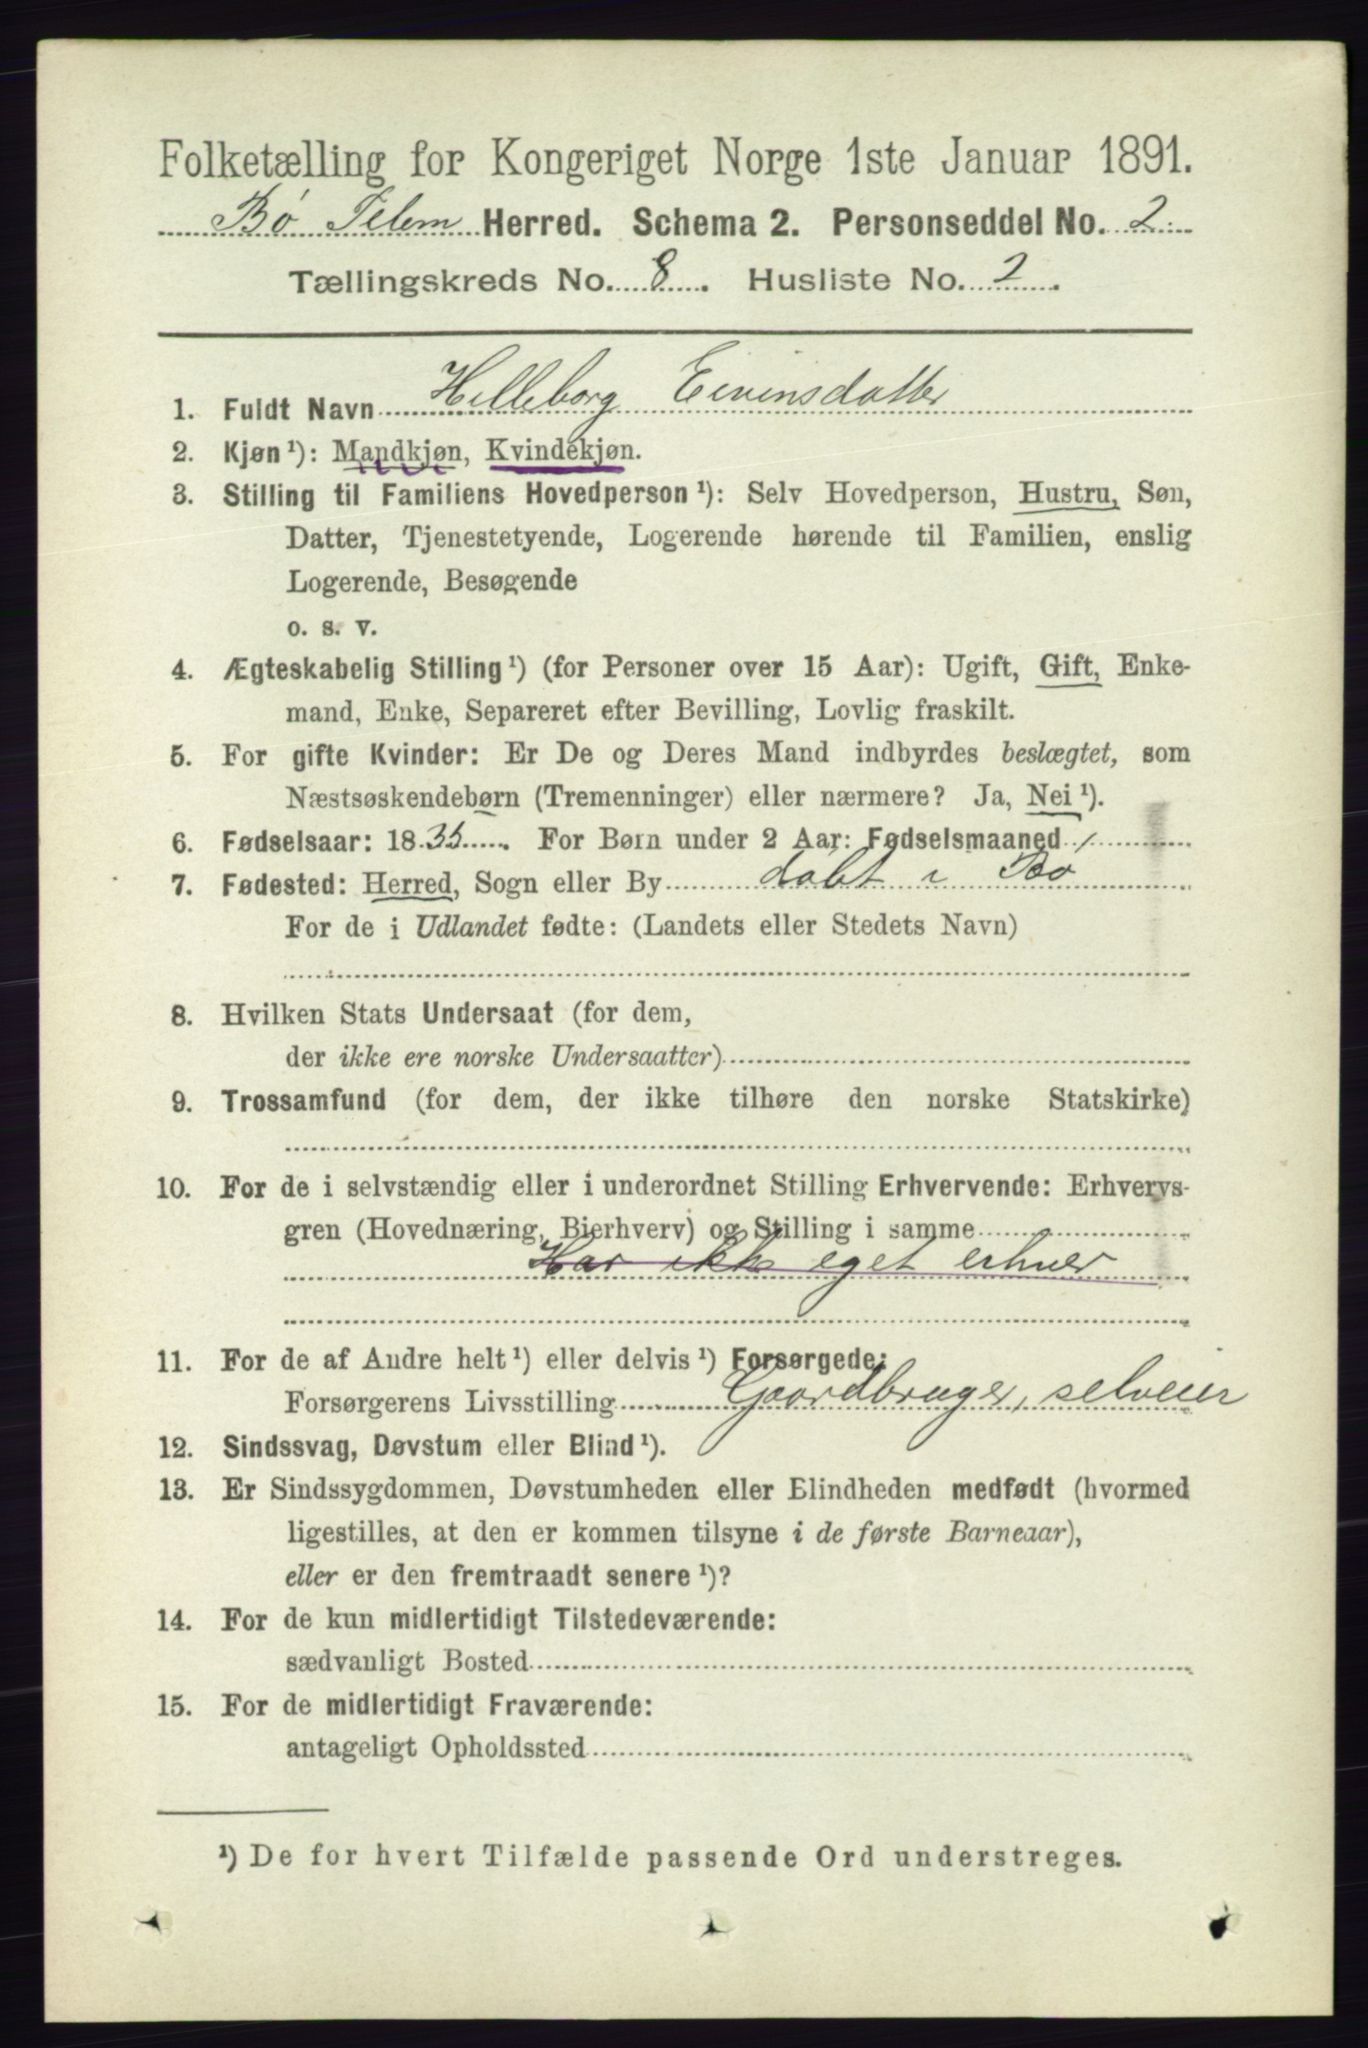 Folketælling for Kongeriget Norge 1ste Januar 1891.
Bø Telem Herred. Schema 2. Personseddel No. 2
Tællingskreds No. 8. Husliste No. 2.
1. Fuldt Navn Helleborg Eivinsdatter
2. Kjøn¹): Mandkjøn, Kvindekjøn.
3. Stilling til Familiens Hovedperson¹): Selv Hovedperson, Hustru, Søn,
Datter, Tjenestetyende, Logerende hørende til Familien, enslig
Logerende, Besøgende
o. s. v.
4. Ægteskabelig Stilling¹) (for Personer over 15 Aar): Ugift, Gift, Enke-
mand, Enke, Separeret efter Bevilling, Lovlig fraskilt.
5. For gifte Kvinder: Er De og Deres Mand indbyrdes beslægtet, som
Næstsøskendebørn (Tremenninger) eller nærmere? Ja, Nei¹).
6. Fødselsaar: 1835. For Børn under 2 Aar: Fødselsmaaned
7. Fødested: Herred, Sogn eller By døbt i Bø
For de i Udlandet fødte: (Landets eller Stedets Navn)
8. Hvilken Stats Undersaat (for dem,
der ikke ere norske Undersaatter)
9. Trossamfund (for dem, der ikke tilhøre den norske Statskirke)
10. For de i selvstændig eller i underordnet Stilling Erhvervende: Erhvervs-
gren (Hovednæring, Bierhverv) og Stilling i samme
Har ikke eget erhver
11. For de af Andre helt¹) eller delvis¹) Forsørgede:
Forsørgerens Livsstilling Gaardbruger, selveier
12. Sindssvag, Døvstum eller Blind¹).
13. Er Sindssygdommen, Døvstumheden eller Blindheden medfødt (hvormed
ligestilles, at den er kommen tilsyne i de første Barneaar),
eller er den fremtraadt senere¹)?
14. For de kun midlertidigt Tilstedeværende:
sædvanligt Bosted
15. For de midlertidigt Fraværende:
antageligt Opholdssted
¹) De for hvert Tilfælde passende Ord understreges.